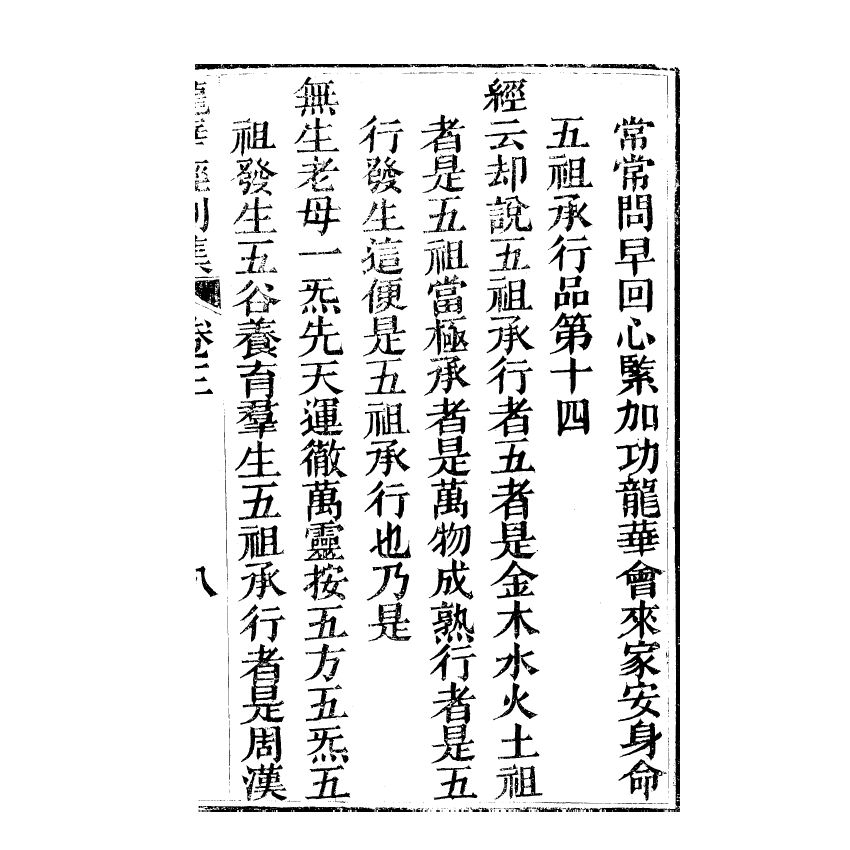 常常問早回心緊加功龍華會來家安身命
五祖承行品第十四
經云却說五祖承行者五者是金木水火土祖
者是五祖當極承者是萬物成熟行者是五
行發生這便是五祖承行也乃是
無生老母一炁先天運徹萬靈按五方五炁五
祖發生五谷養育羣生五祖承行者是周漢
卷三
八